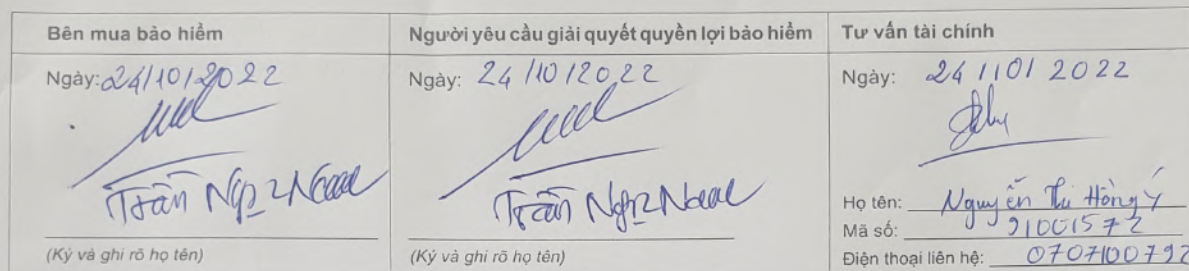 Bên mua bảo hiểm
Người yêu cầu giải quyết quyền lợi bảo hiểm
Tư vấn tài chính
Ngày: 24/10/2022
Ngày: 24/10/2022
Ngày: 24/10/2022
Trần
Trần
Họ tên: Nguyễn Thị Hồng Ý
Mã số: 91001572
(Ký và ghi rõ họ tên)
(Ký và ghi rõ họ tên)
Điện thoại liên hệ: 0707100792